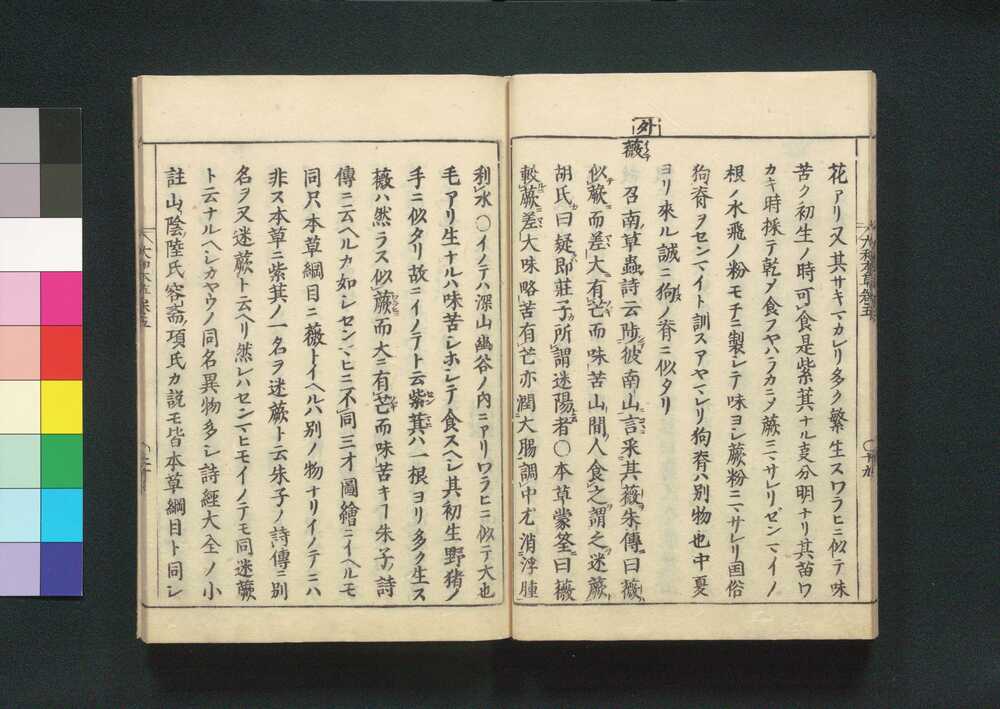 花アリ又其サキマカレリ多ク繁生スワラヒニ似テ味
苦ク初生ノ時可食是紫萁ナル夏分明ナリ其苗ワ
カキ時採テ乾メ食フヤハラカニメ蕨ニマサレリゼンマイノ
根ノ水飛ノ粉モチニ製シテ味ヨシ蕨粉ニマサレリ国俗
狗脊ヲセンマイト訓スアヤマレリ狗脊ハ別物也中夏
ヨリ來ル誠ニ狗ノ脊ニ似タリ
外
薇 召南草蟲詩云陟彼南山言釆其薇朱傳曰薇
似蕨而差大有芒而味苦山間人食之謂之迷蕨
胡氏曰疑即莊子所謂迷陽者〇本草蒙筌曰薇
較蕨差大味略苦有芒亦潤大腸調中尤消浮腫
大和本草卷五
利水〇イノテハ深山幽谷ノ内ニアリワラヒニ似テ大也
毛アリ生ナルハ味苦シホシテ食スヘシ其初生野猪ノ
手ニ似タリ故ニイノテト云紫萁ハ一根ヨリ多ク生ス
薇ハ然ラス似蕨而大ニ有芒而味苦キヿ朱子ノ詩
傳ニ云ヘルカ如シセンマヒニ不同三才圖繪ニイヘルモ
同只本草綱目ニ薇トイヘルハ別ノ物ナリイノテニハ
非ス本草ニ紫萁ノ一名ヲ迷蕨ト云朱子ノ詩傳ニ別
名ヲ又迷蕨ト云ヘリ然レハセンマヒモイノテモ同迷蕨
ト云ナルヘシカヤウノ同名異物多シ詩經大全ノ小
註山陰陸氏容齋項氏カ説モ皆本草綱目ト同シ